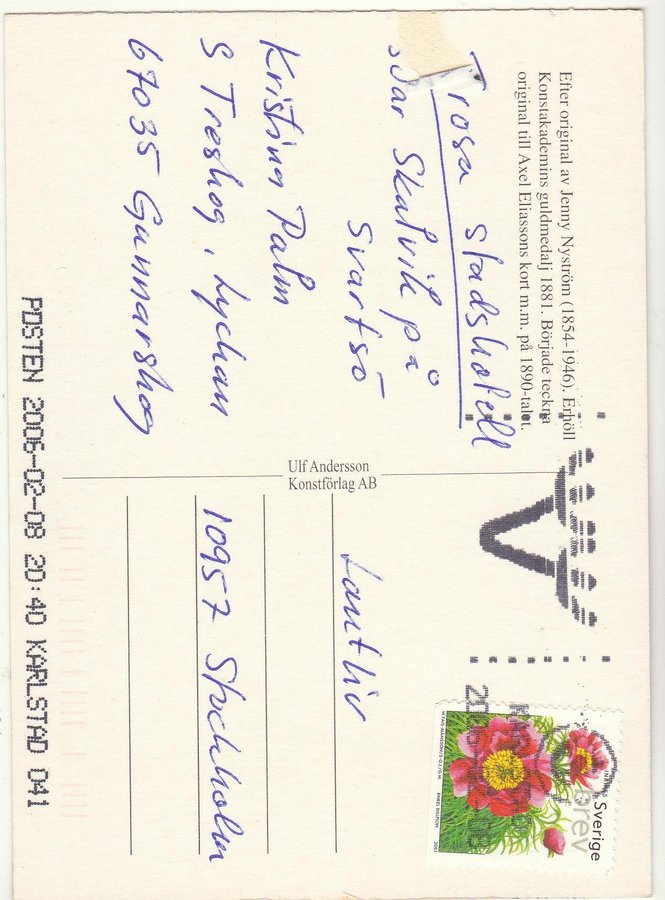 Efter original av Jenny Nyström (1854-1946). Erhöll
Konstakademins guldmedalj 1881. Började teckna
original till Axel Eliassons kort m.m. på 1890-talet.
Trosa stadshotell
svar Skatvik på
Svartsö
Kristina Palm
S Treskog, Lychan
67035 Gunnarskog
Ulf Andersson
Konstförlag AB
Lantliv
10957 Stockholm
Sverige
brev
2001
POSTEN 2006-02-08 20:40 KARLSTAD 041